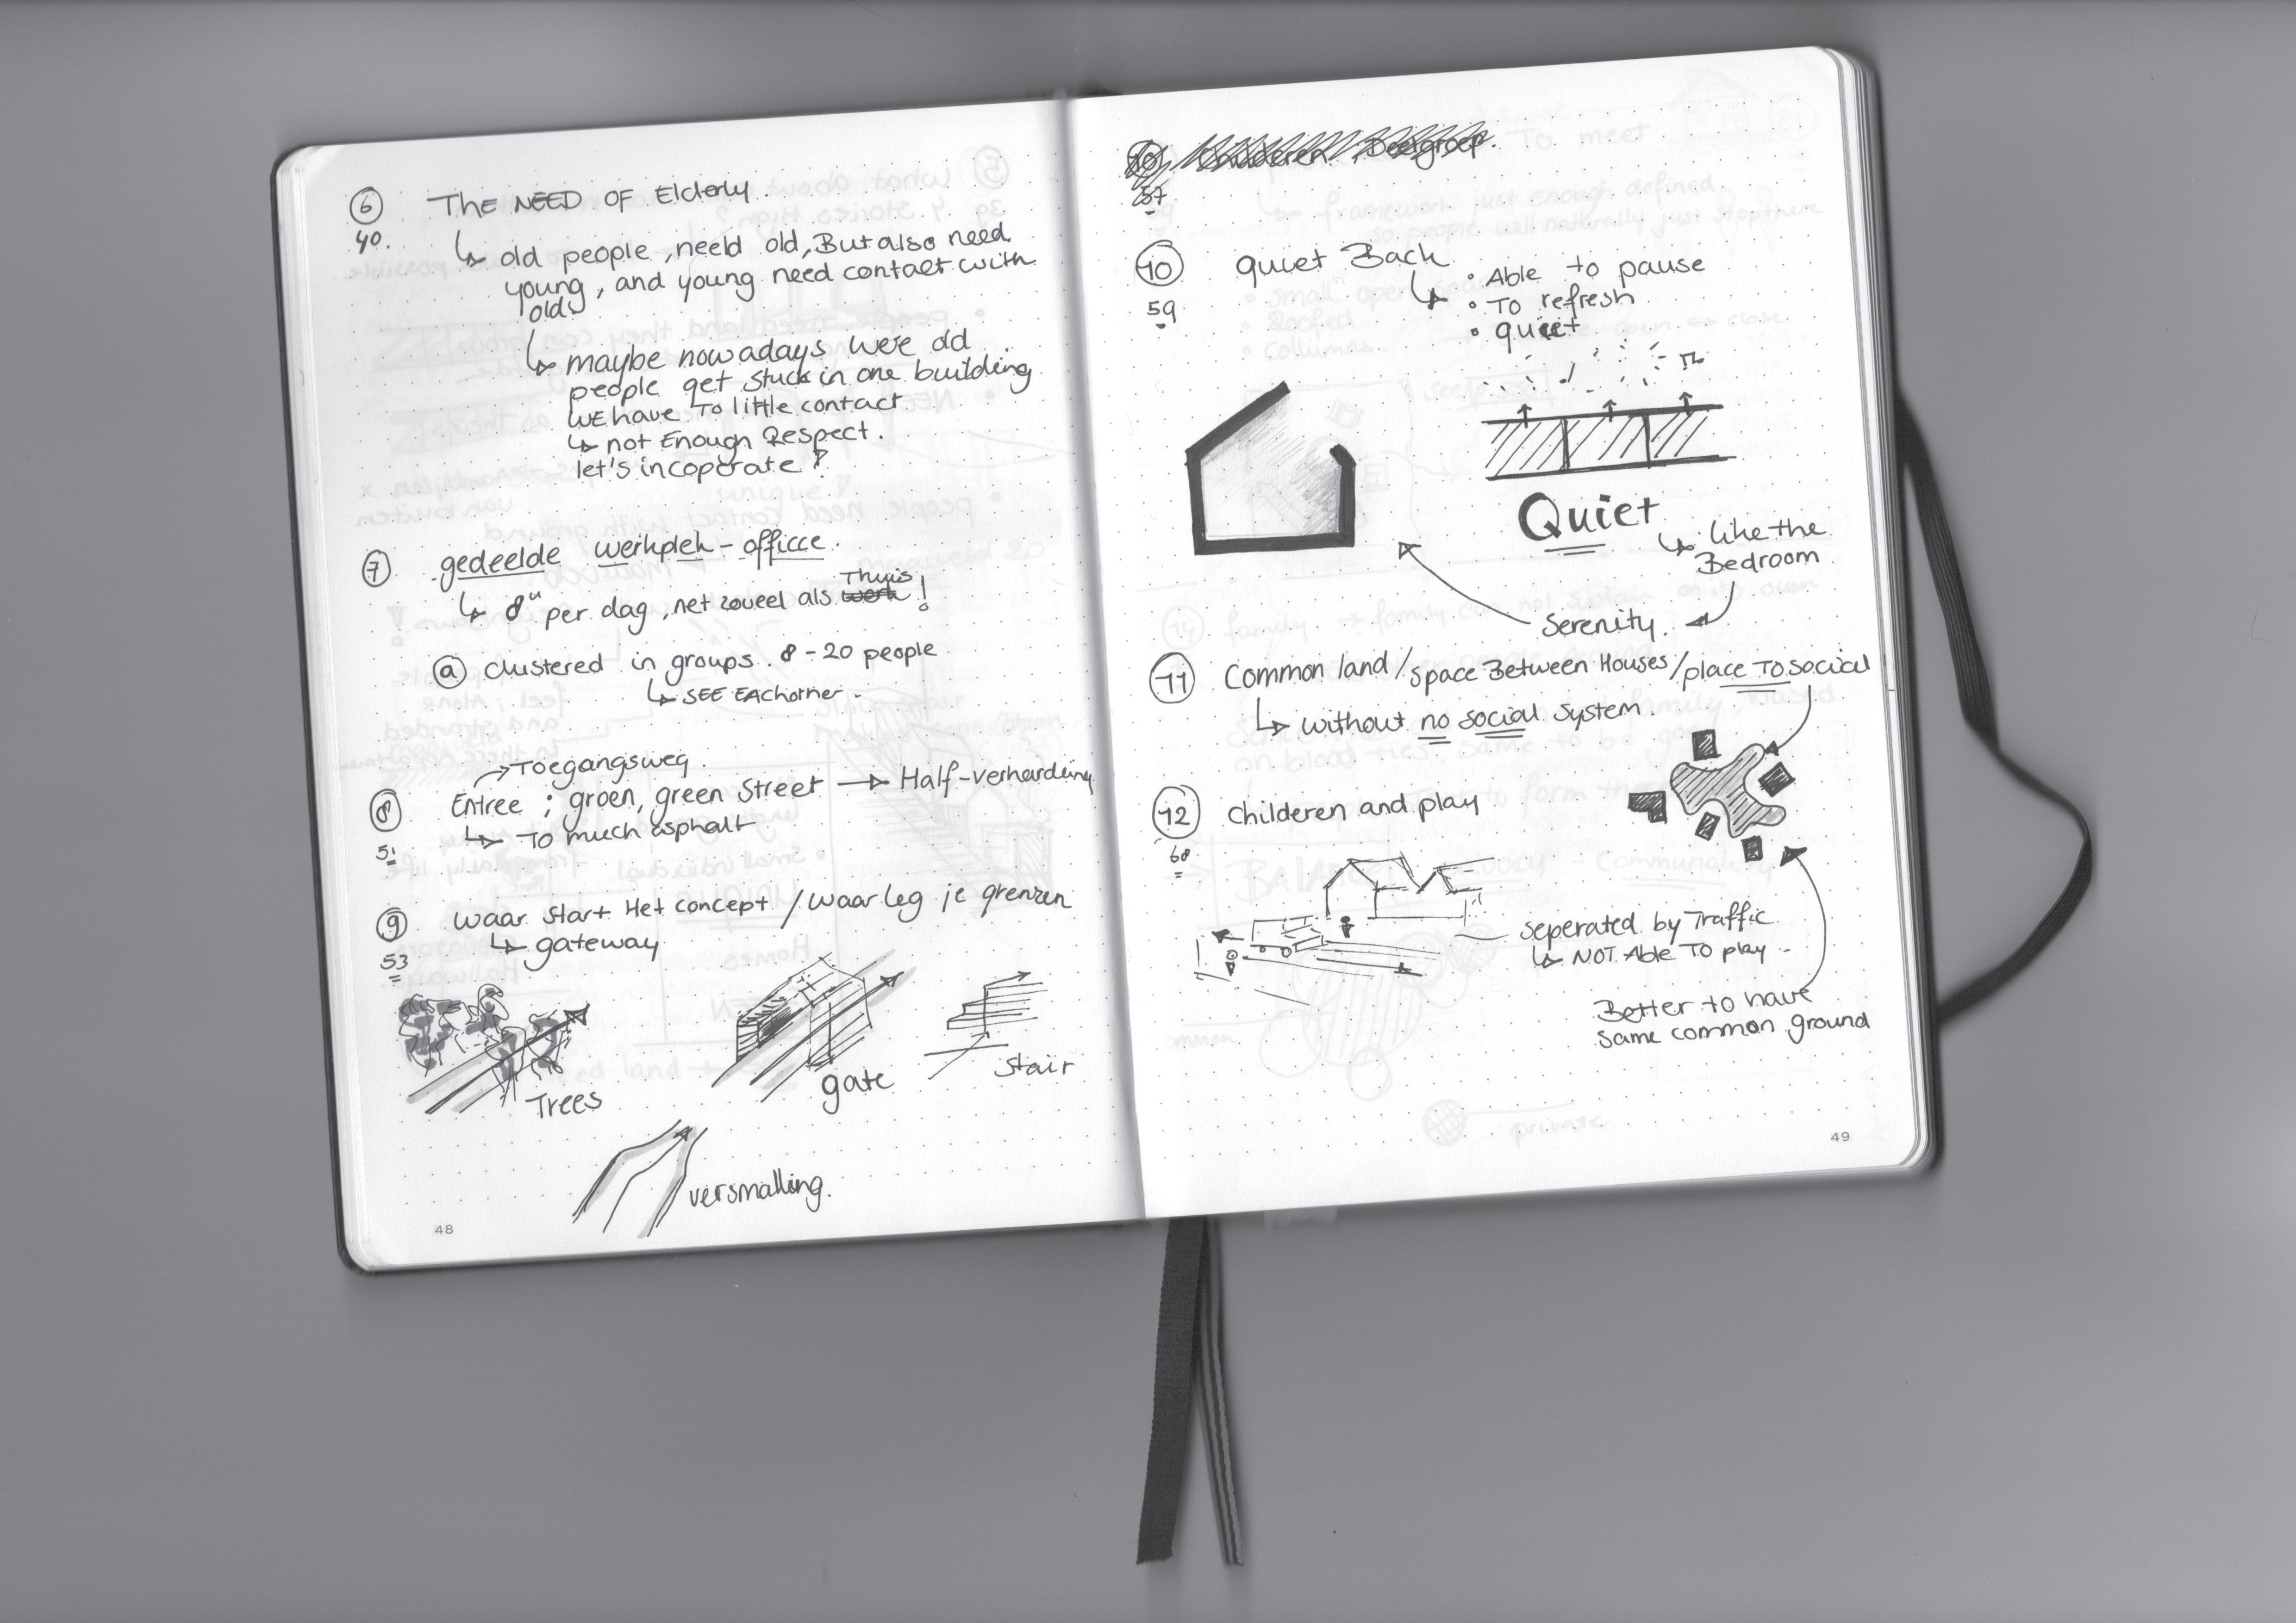 6 THE NEED OF Elderly.
40.
↳ old people, need old, But also need
young, and young need contact with
old
↳ maybe nowadays were old
people get stuck in one building
WE have To little contact
↳ not Enough Respect.
let's incoperate?
7 gedeelde werkplek - officce.
↳ 8u per dag, net zoveel als work Thuis!
a clustered in groups. 8-20 people
↳ SEE EAchother.
→ Toegangsweg.
8 Entree; groen, green street → Half-verharding
51
↳ To much asphalt
9 waar start Het concept / waar leg je grenzen
53
↳ gateway
Trees
gate
stair
versmalling.
48
57
10 quiet Back
59
• Able to pause
• To refresh
• quiet
Quiet
↳ like the
Bedroom
Serenity.
11 Common land / space Between Houses / place To social
↳ without no social system.
12 childeren and play
68
seperated by Traffic
↳ NOT Able To play -
Better to have
same common ground
49